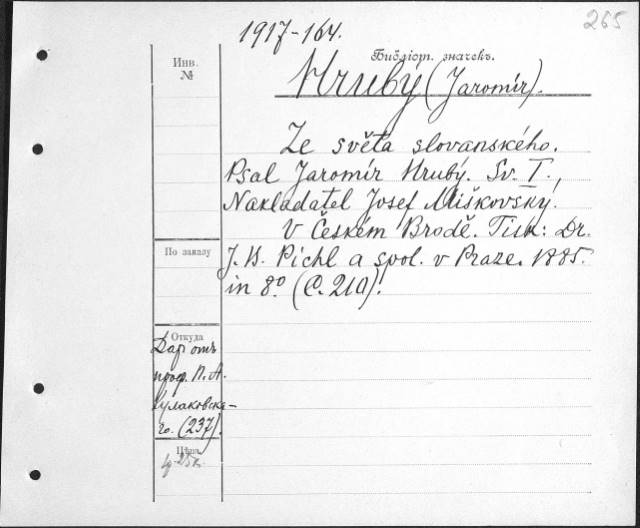 265
1917-164.
Библіот. значекъ.
Инв.
№
Hrubý (Jaromír).
Ze světa slovanského.
Psal Jaromír Hrubý. Sv. I.,
Nakladatel Josef Miškovský.
V Českém Brodě. Tisk: Dr.
J. B. Pichl a spol. v Praze. 1885.
in 8º. (C. 210).
По заказу
Откуда
Даръ отъ
проф. П. А.
Кулаковска-
го. (237).
Цѣна